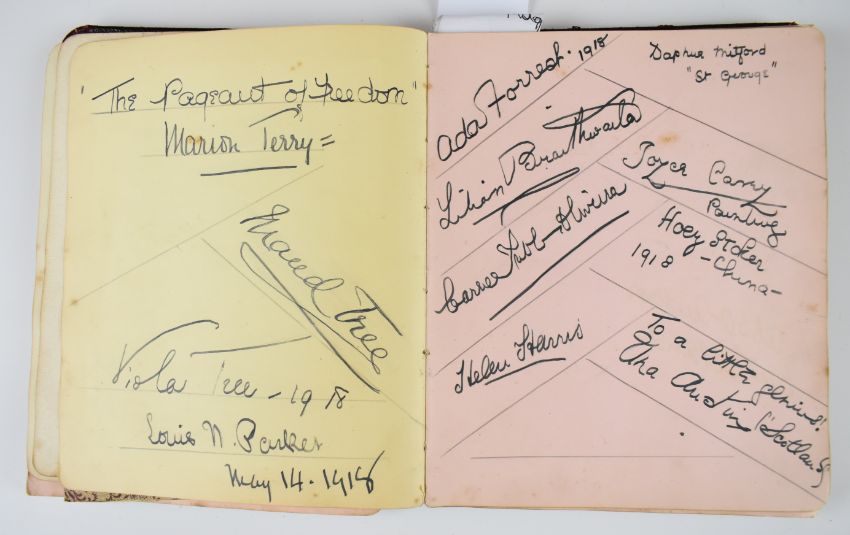 "The Pageant of Freedom"
Marion Terry =
Maud Tree
Viola Tree - 1918
Louis N. Parker
May 14. 1918
Ada Forrest. 1918
Lilian Braithwaite
Carrie Tubb-Oliveira
Helen Harris
Daphne Mitford
"St George"
Joyce Carey
Painting
Hoey Stoker
1918 - China -
To a little genius!
Una Austin ("Scotland")